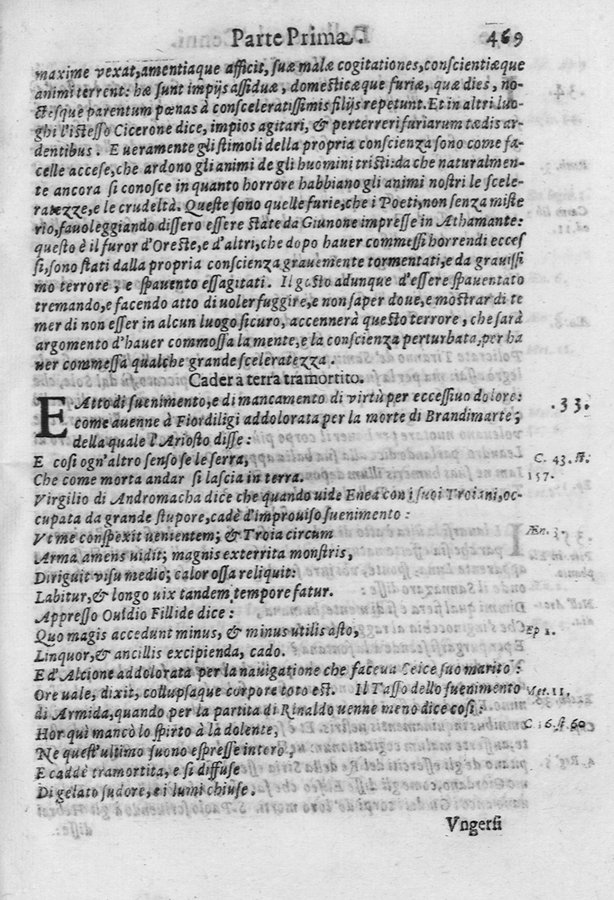 Parte Prima. 469
maxime vexat, amentiaque afficit, suæ malæ cogitationes, conscientiæque
animi terrent: hæ sunt impijs assiduæ, domesticæque furiæ, quæ dies, no-
ctesque parentum pœnas à consceleratissimis filijs repetunt. Et in altri luo-
ghi l'istesso Cicerone dice, impios agitari, & perterreri furiarum tædis ar-
dentibus. E ueramente gli stimoli della propria conscienza sono come fa-
celle accese, che ardono gli animi de gli huomini tristi: da che naturalmen-
te ancora si conosce in quanto horrore habbiano gli animi nostri le scele-
ratezze, e le crudeltà. Queste sono quelle furie, che i Poeti, non senza miste
rio, fauoleggiando dissero essere state da Giunone impresse in Athamante:
questo è il furor d'Oreste, e d'altri, che dopo hauer commessi horrendi eccef
si, sono stati dalla propria conscienza grauemente tormentati, e da grauissi
mo terrore, e spauento essagitati. Il gesto adunque d'essere spauentato
tremando, e facendo atto di uoler fuggire, e non saper doue, e mostrar di te
mer di non esser in alcun luogo sicuro, accennerà questo terrore, che sarà
argomento d'hauer commossa la mente, e la conscienza perturbata, per ha
uer commessa qualche grande sceleratezza.
Cader a terra tramortito.
E Atto di suenimento, e di mancamento di virtù per eccessiuo dolore: .33.
come auenne à Fiordiligi addolorata per la morte di Brandimarte;
della quale l'Ariosto disse:
E così ogn'altro senso se le serra, C. 43. st.
Che come morta andar si lascia in terra. 157.
Virgilio di Andromacha dice che quando uide Enea con i suoi Troiani, oc-
cupata da grande stupore, cadè d'improuiso suenimento:
Vt me conspexit uenientem; & Troia circum Æn. 3.
Arma amens uidit; magnis exterrita monstris,
Diriguit visu medio; calor ossa reliquit:
Labitur, & longo uix tandem tempore fatur.
Appresso Ouidio Fillide dice:
Quo magis accedunt minus, & minus utilis asto, Ep 1.
Linquor, & ancillis excipienda, cado.
E d'Alcione addolorata per la nauigatione che faceua Ceice suo marito:
Ore uale, dixit, collapsaque corpore toto est. Il Tasso dello suenimento Met. 11.
di Armida, quando per la partita di Rinaldo uenne meno dice così: C. 16. st. 60
Hor quì mancò lo spirto à la dolente,
Ne quest'ultimo suono espresse intero,
E cadde tramortita, e si diffuse
Di gelato sudore, e i lumi chiuse.
Vngersi